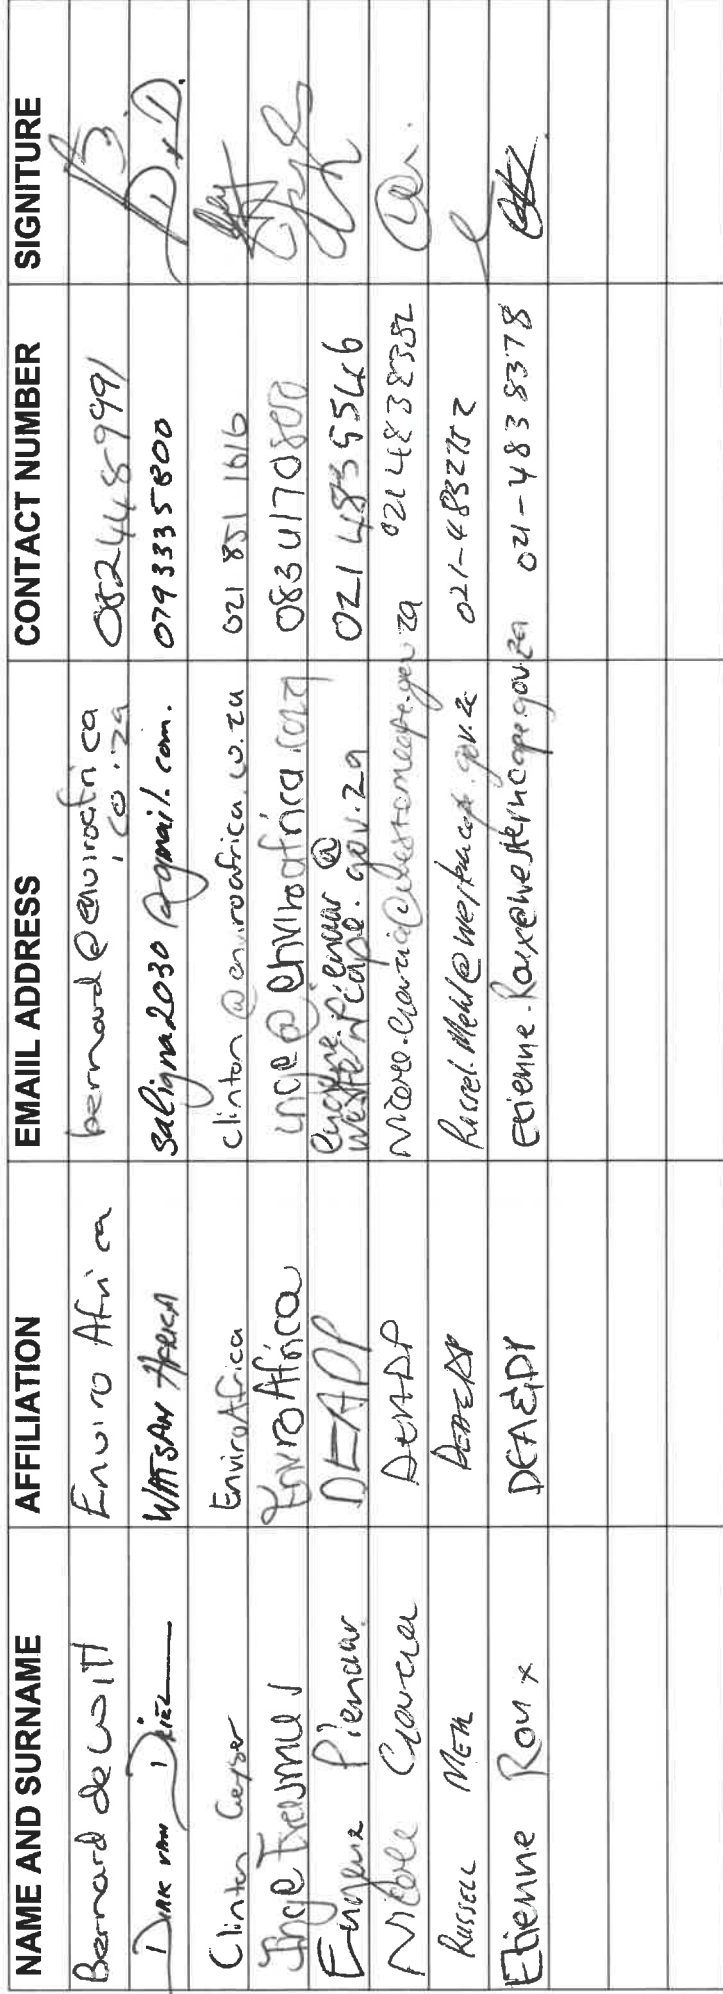 NAME AND SURNAME AFFILIATION EMAIIL ADDRESS CONTACT NUMBER SIGNITURE
Bernard de Witt Enviro Africa bernard@enviroafrica 0824489991
.co.za
Dirk van Driel WATSAN AFRICA saligna2030@gmail.com. 0793335800 D.v.D.
Clinton Geyser EnviroAfrica clinton@enviroafrica.co.za 021 851 1616
Inge Erasmus EnviroAfrica inge@enviroafrica.co.za 0834170800
Eugene Pienaar DEADP eugene.pienaar@ 021 483
westerncape.gov.za
Nicole Garcia DEADP Nicole.Garcia@westerncape.gov.za 021 4838382
Russell Mehl Russel.Mehl@westerncape.gov.za 021-4832752
Etienne Roux DEA&DP Etienne.Roux@westerncape.gov.za 021-483 8378